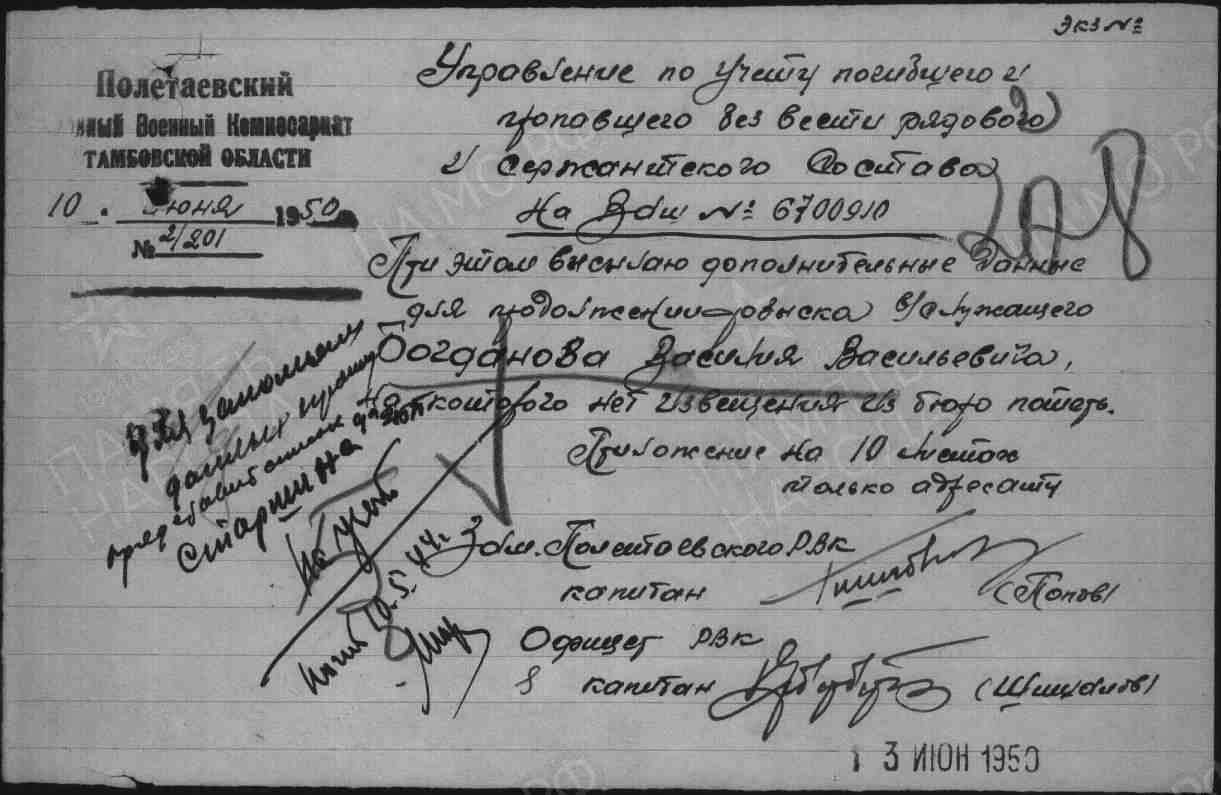 Экз №2
Полетаевский
нный Военный Комиссариат
ТАМБОВСКОЙ ОБЛАСТИ
10 июня 1950
№ 2/201
Управление по учету погибшего и
пропавшего без вести рядового
и сержантского состава
На №: 6700910
При этом высылаю дополнительные данные
для продолжении розыска в/служащего
Богданова Василия Васильевича,
на которого нет извещения из бюро потерь.
Приложение на 10 листах
только адресату
Полетаевского РВК
капитан (Попов)
Офицер РВК
капитан
данных
старшина
10.5.44г.
13 ИЮН 1950
ПАМЯТЬ
НАРОДА
ЦАМО РФ